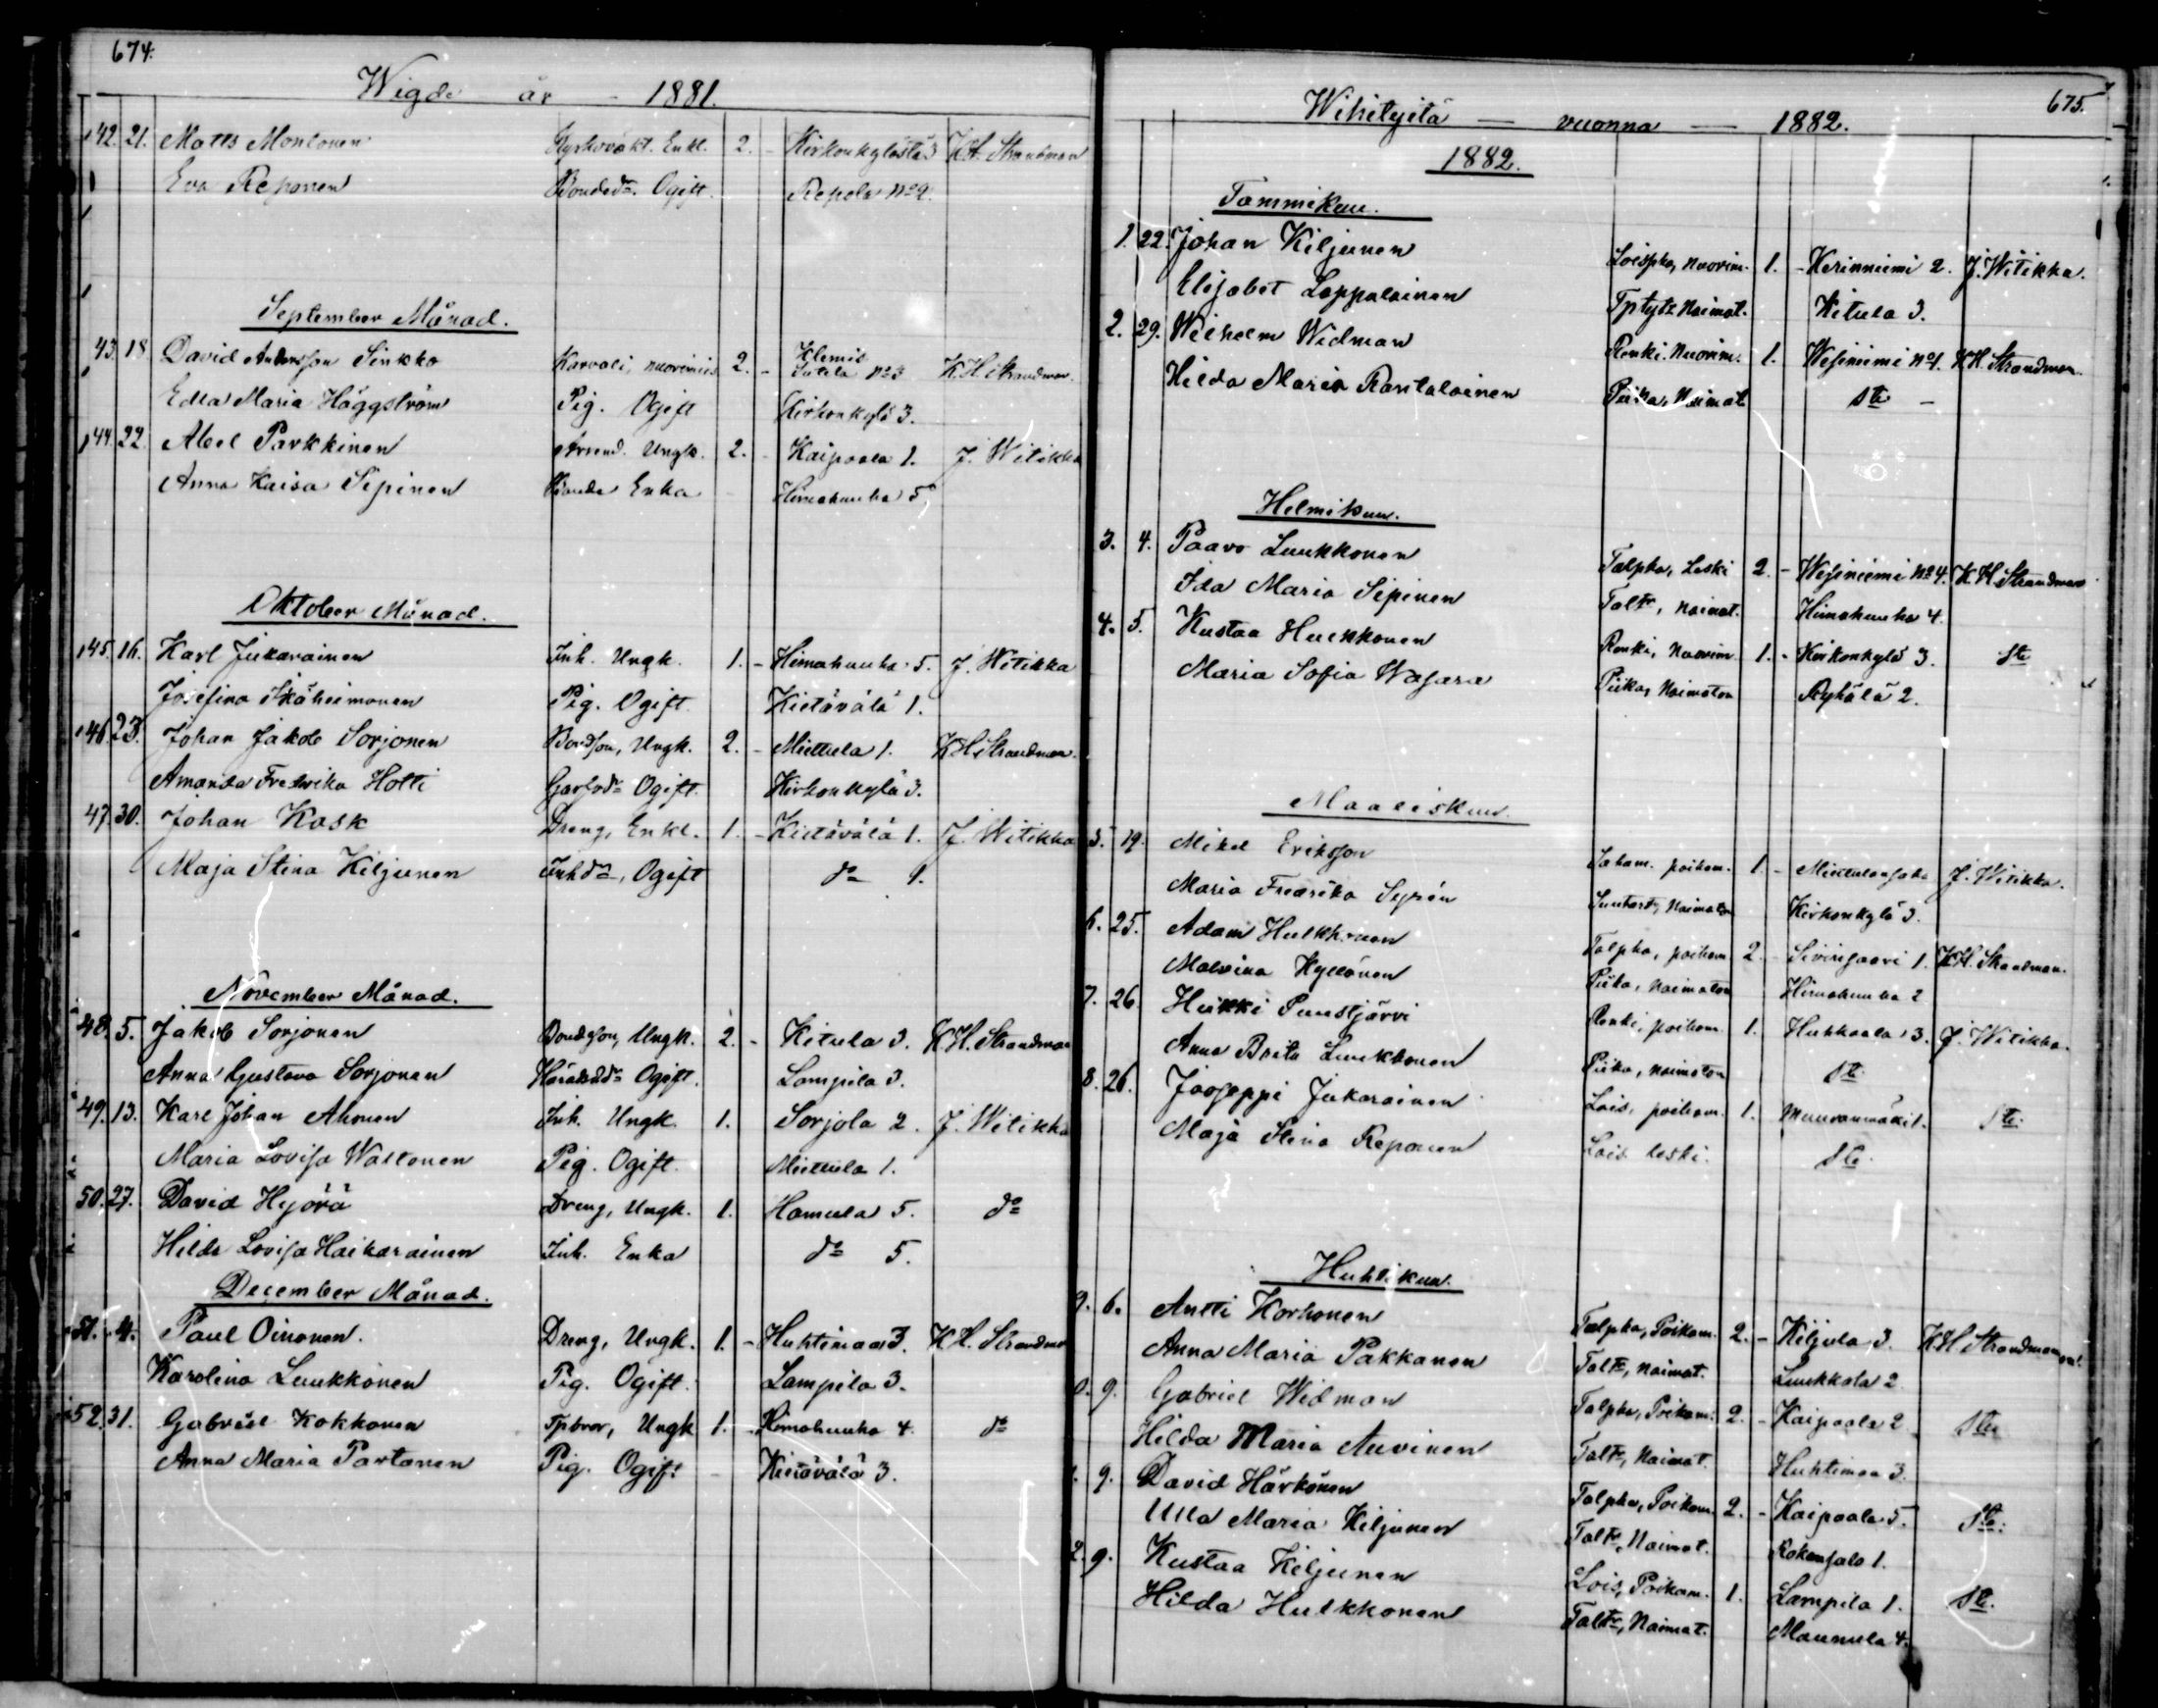 674.
Wigde år - 1881.
42. 21. Matts Monlonen Kyrkovakt. Enkl. 2. - Kirkonkylästä 3 K.H. Strandman
Eva Reponen Bonded:r Ogift. Repola No 2.
September Månad.
43. 18 David Andersson Sinkko Karvali, nuorimies 2. - Klemis Jutila No 3 K.H. Strandman.
Edla Maria Häggström Pig. Ogift Kirkonkylä 3.
44. 22. Abel Parkkinen Arrend. Ungk. 2. - Kaipaala 1. J. Witikka
Anna Kaisa Sipinen Bonde Enka Himahuuha 5
Oktober Månad.
45. 16. Karl Jukarainen Inh. Ungk. 1. - Himahuuha 5. J. Witikka
Josefina Ikäheimonen Pig. Ogift. Kietävälä 1.
46. 23. Johan Jakob Sorjonen Bondson, Ungk. 2. - Miettula 1. K.H. Strandman.
Amanda Fredrika Hotti Garfvd:r Ogift. Kirkonkylä 3.
47. 30. Johan Kask Dreng, Enkl. 1. - Kietävälä 1. J. Witikka
Maja Stina Kiljunen Inhd:r, Ogift do 1.
November Månad.
48. 5. Jakob Sorjonen Bondson, Ungk. 2. - Kitula 3. K.H. Strandman
Anna Gustava Sorjonen Ogift. Lampila 3.
49. 13. Karl Johan Ahonen Inh. Ungk. 1. Sorjola 2. J. Witikka
Maria Lovisa Waltonen Pig. Ogift. Miettula 1.
50. 27. David Hejörä Dreng, Ungk. 1. Hamula 5. do
Hilda Lovisa Haikarainen Inh. Enka do 5.
December Månad.
51. 4. Paul Oinonen. Dreng, Ungk. 1. - Huhtimaa 3. K.H. Strandman
Karolina Luukkonen Pig. Ogift. Lampila 3.
52. 31. Gabriel Kokkonen Tpbror, Ungk 1. - Himahuuha 4. do
Anna Maria Partanen Pig. Ogift - Kietävälä 3.
675.
Wihityitä — vuonna — 1882.
1882.
Tammikuu.
1. 22. Johan Kiljunen Loispka, nuorim. 1. - Kerinniemi 2. J. Witikka.
Elisabet Lappalainen Tptytr Naimat. Kitula 3.
2. 29. Wilhelm Widman Renki. Nuorim. 1. Wesiniemi No 4. K.H. Strandman.
Hilda Maria Rantalainen Piika, Naimat. Ste -
Helmikuu.
3. 4. Paavo Luukkonen Talpka, Leski 2. - Wesiniemi No 4. K.H. Strandman
Ida Maria Sipinen Taltr, naimat. Himahuuha 4.
4. 5. Kustaa Hulkkonen Renki, Nuorim. 1. - Kirkonkylä 3. Ste
Maria Sofia Wasara Piika, Naimaton Ryhälä 2.
Maaliskuu.
5. 19. Mikel Eriksson Saham. poikam. 1. - Miettulansaha J. Witikka.
Maria Fredrika Syrén Naimaton Kirkonkylä 3.
6. 25. Adam Hulkkonen Talpka, poikam 2. - Sivinsaari 1. K.H. Strandman.
Malvina Kyllönen Piika, Naimaton Himahuuha 2
7. 26. Heikki Punstjärvi Renki, poikam. 1. Huhkaala 3. J. Witikka.
Anna Brita Luukkonen Piika, naimaton Ste
8. 26. Jooseppi Jukarainen Lois, poikam. 1. Muuvanmäki 1. Ste.
Maja Stina Reponen Lois leski. Ste.
Huhtikuu.
9. 6. Antti Korhonen Talpka, Poikam. 2. - Kiljula 3. K.H. Strandman
Anna Maria Pakkanen Taltr, naimat. Luukkala 2.
0. 9. Gabriel Widman Talpka, Poikam. 2. - Kaipaala 2 Ste
Hilda Maria Auvinen Taltr, Naimat. Huhtimaa 3.
9. David Härkönen Talpka, Poikam. 2. - Kaipaala 5. Ste.
Ulla Maria Kiljunen Taltr, Naimat. Rokansalo 1.
2. 9. Kustaa Kiljunen Lois, Poikam. 1. Lampila 1. Ste.
Hilda Hulkkonen Taltr, Naimat. Maunula 4.